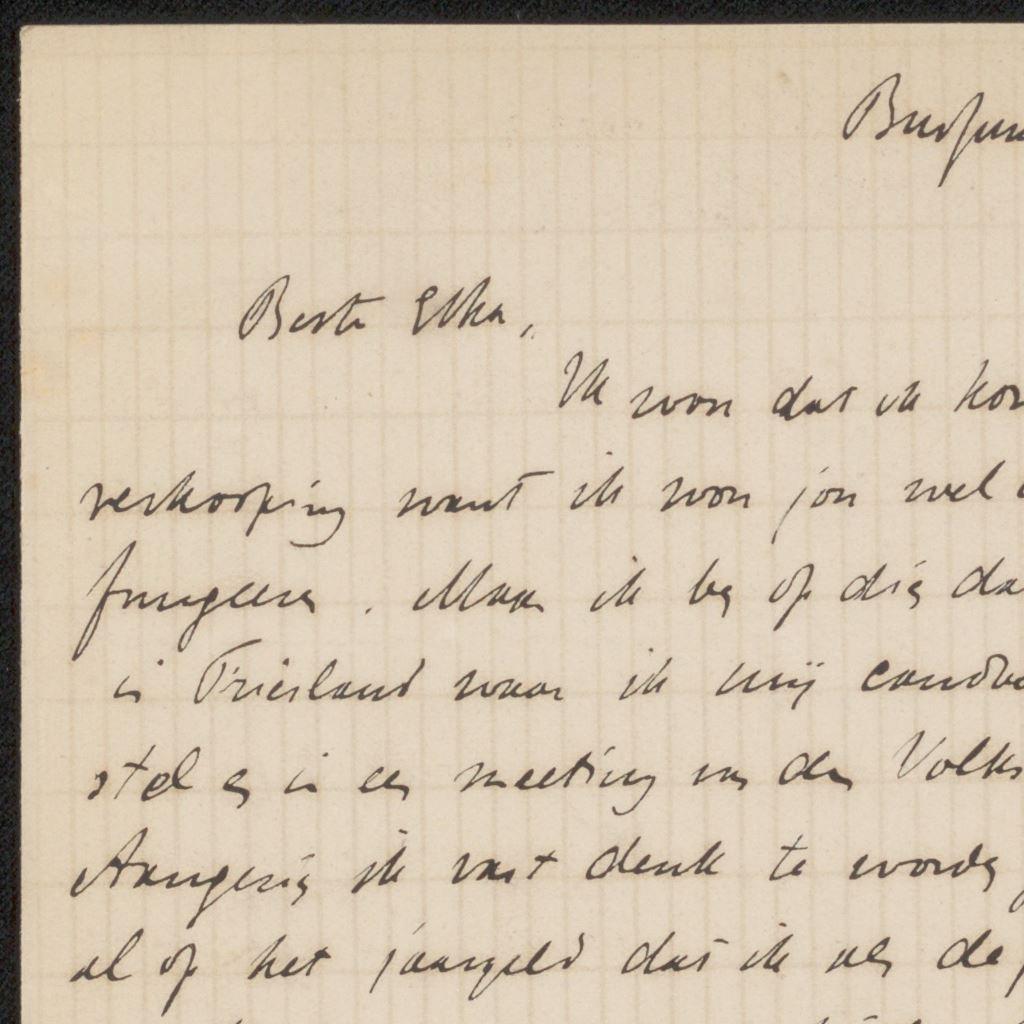 Bussum
Beste Etha,
Ik wou dat ik kon
verkooping want ik wou jou wel
fungeeren. Maar ik ben op dien da
in Friesland waar ik mij candid
stel en in een meeting van den Volks
Aangezien ik vast denk te worden
al op het jaargeld dat ik als de